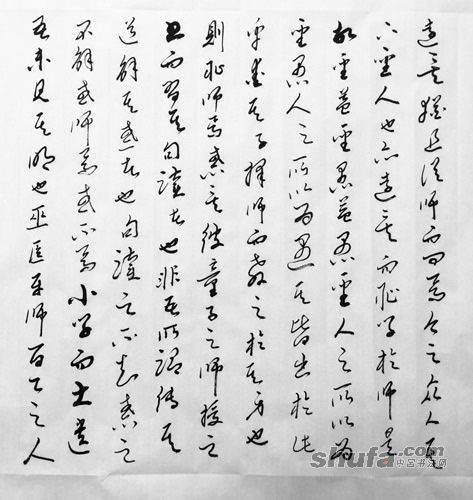 遠矣猶且從師而問焉今之衆人其
下聖人也亦遠矣而恥學於師是
故聖益聖愚益愚聖人之所以為
聖愚人之所以為愚其皆出於此
乎愛其子擇師而教之於其身也
則恥師焉惑矣彼童子之師授之
書而習其句讀者也非吾所謂傳其
道解其惑者也句讀之不知惑之
不解或師焉或不焉小學而大遺
吾未見其明也巫醫樂師百工之人
shufa.com
中国书法网